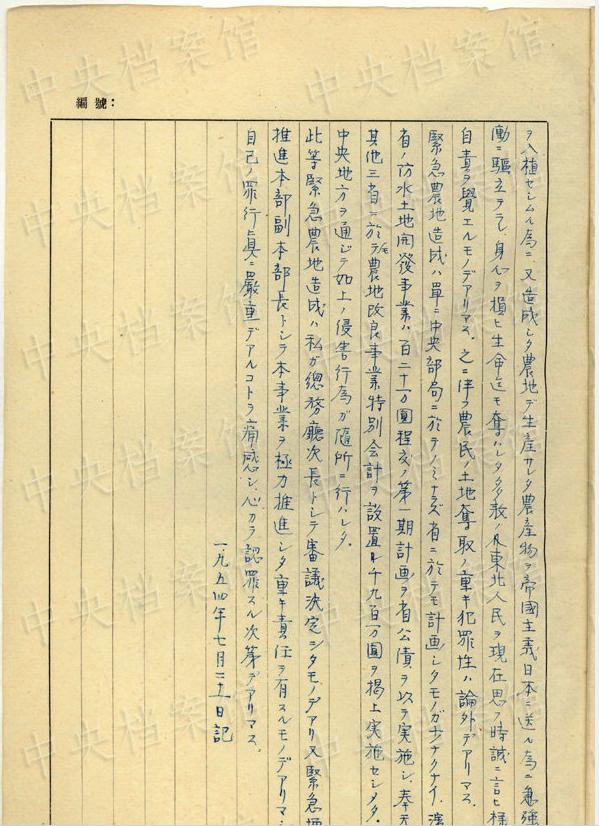 編號：
ヲ入植セシムル為ニ、又造成シタ農地デ生産サレタ農産物ヲ帝國主義日本ニ送ル為ニ
働ニ驅立テラレ、身心ヲ損ヒ生命迄モ奪ハレタ多数ノ東北人民ヲ現在思フ時誠ニ言ヒ
自責ヲ覺エルモノデアリマス。之ニ伴フ農民ノ土地奪取ノ重キ犯罪性ハ論外デアリマス。
緊急農地造成ハ單ニ中央部局ニ於テノミナラズ省ニ於テモ計画シタモノガ少ナクナイ.
省ノ防水土地開發事業ハ百二十万圓程度ノ第一期計画ヲ省公債ヲ以テ実施シ、奉天
其他三省ニ於テモ農地改良事業特別会計ヲ設置シ千九百万圓ヲ揭上実施セシメタ。
中央地方ヲ通ジテ如上ノ侵害行為ガ随所ニ行ハレタ。
此等緊急農地造成ハ私ガ總務廳次長トシテ審議決定シタモノデアリ又緊急
推進本部副本部長トシテ本事業ヲ極力推進シタ重キ責任ヲ有スルモノデアリマシ
自己ノ罪行眞ニ嚴重デアルコトヲ痛感シ、心カラ認罪スル次第デアリマス.
一九五四年七月二十一日記
中央档案馆